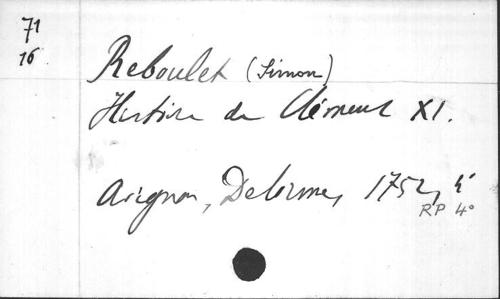 71
16
Reboulet (Simon)
Histoire de Clément XI.
Avignon, Delorme, 1752, 4°
RP 4°